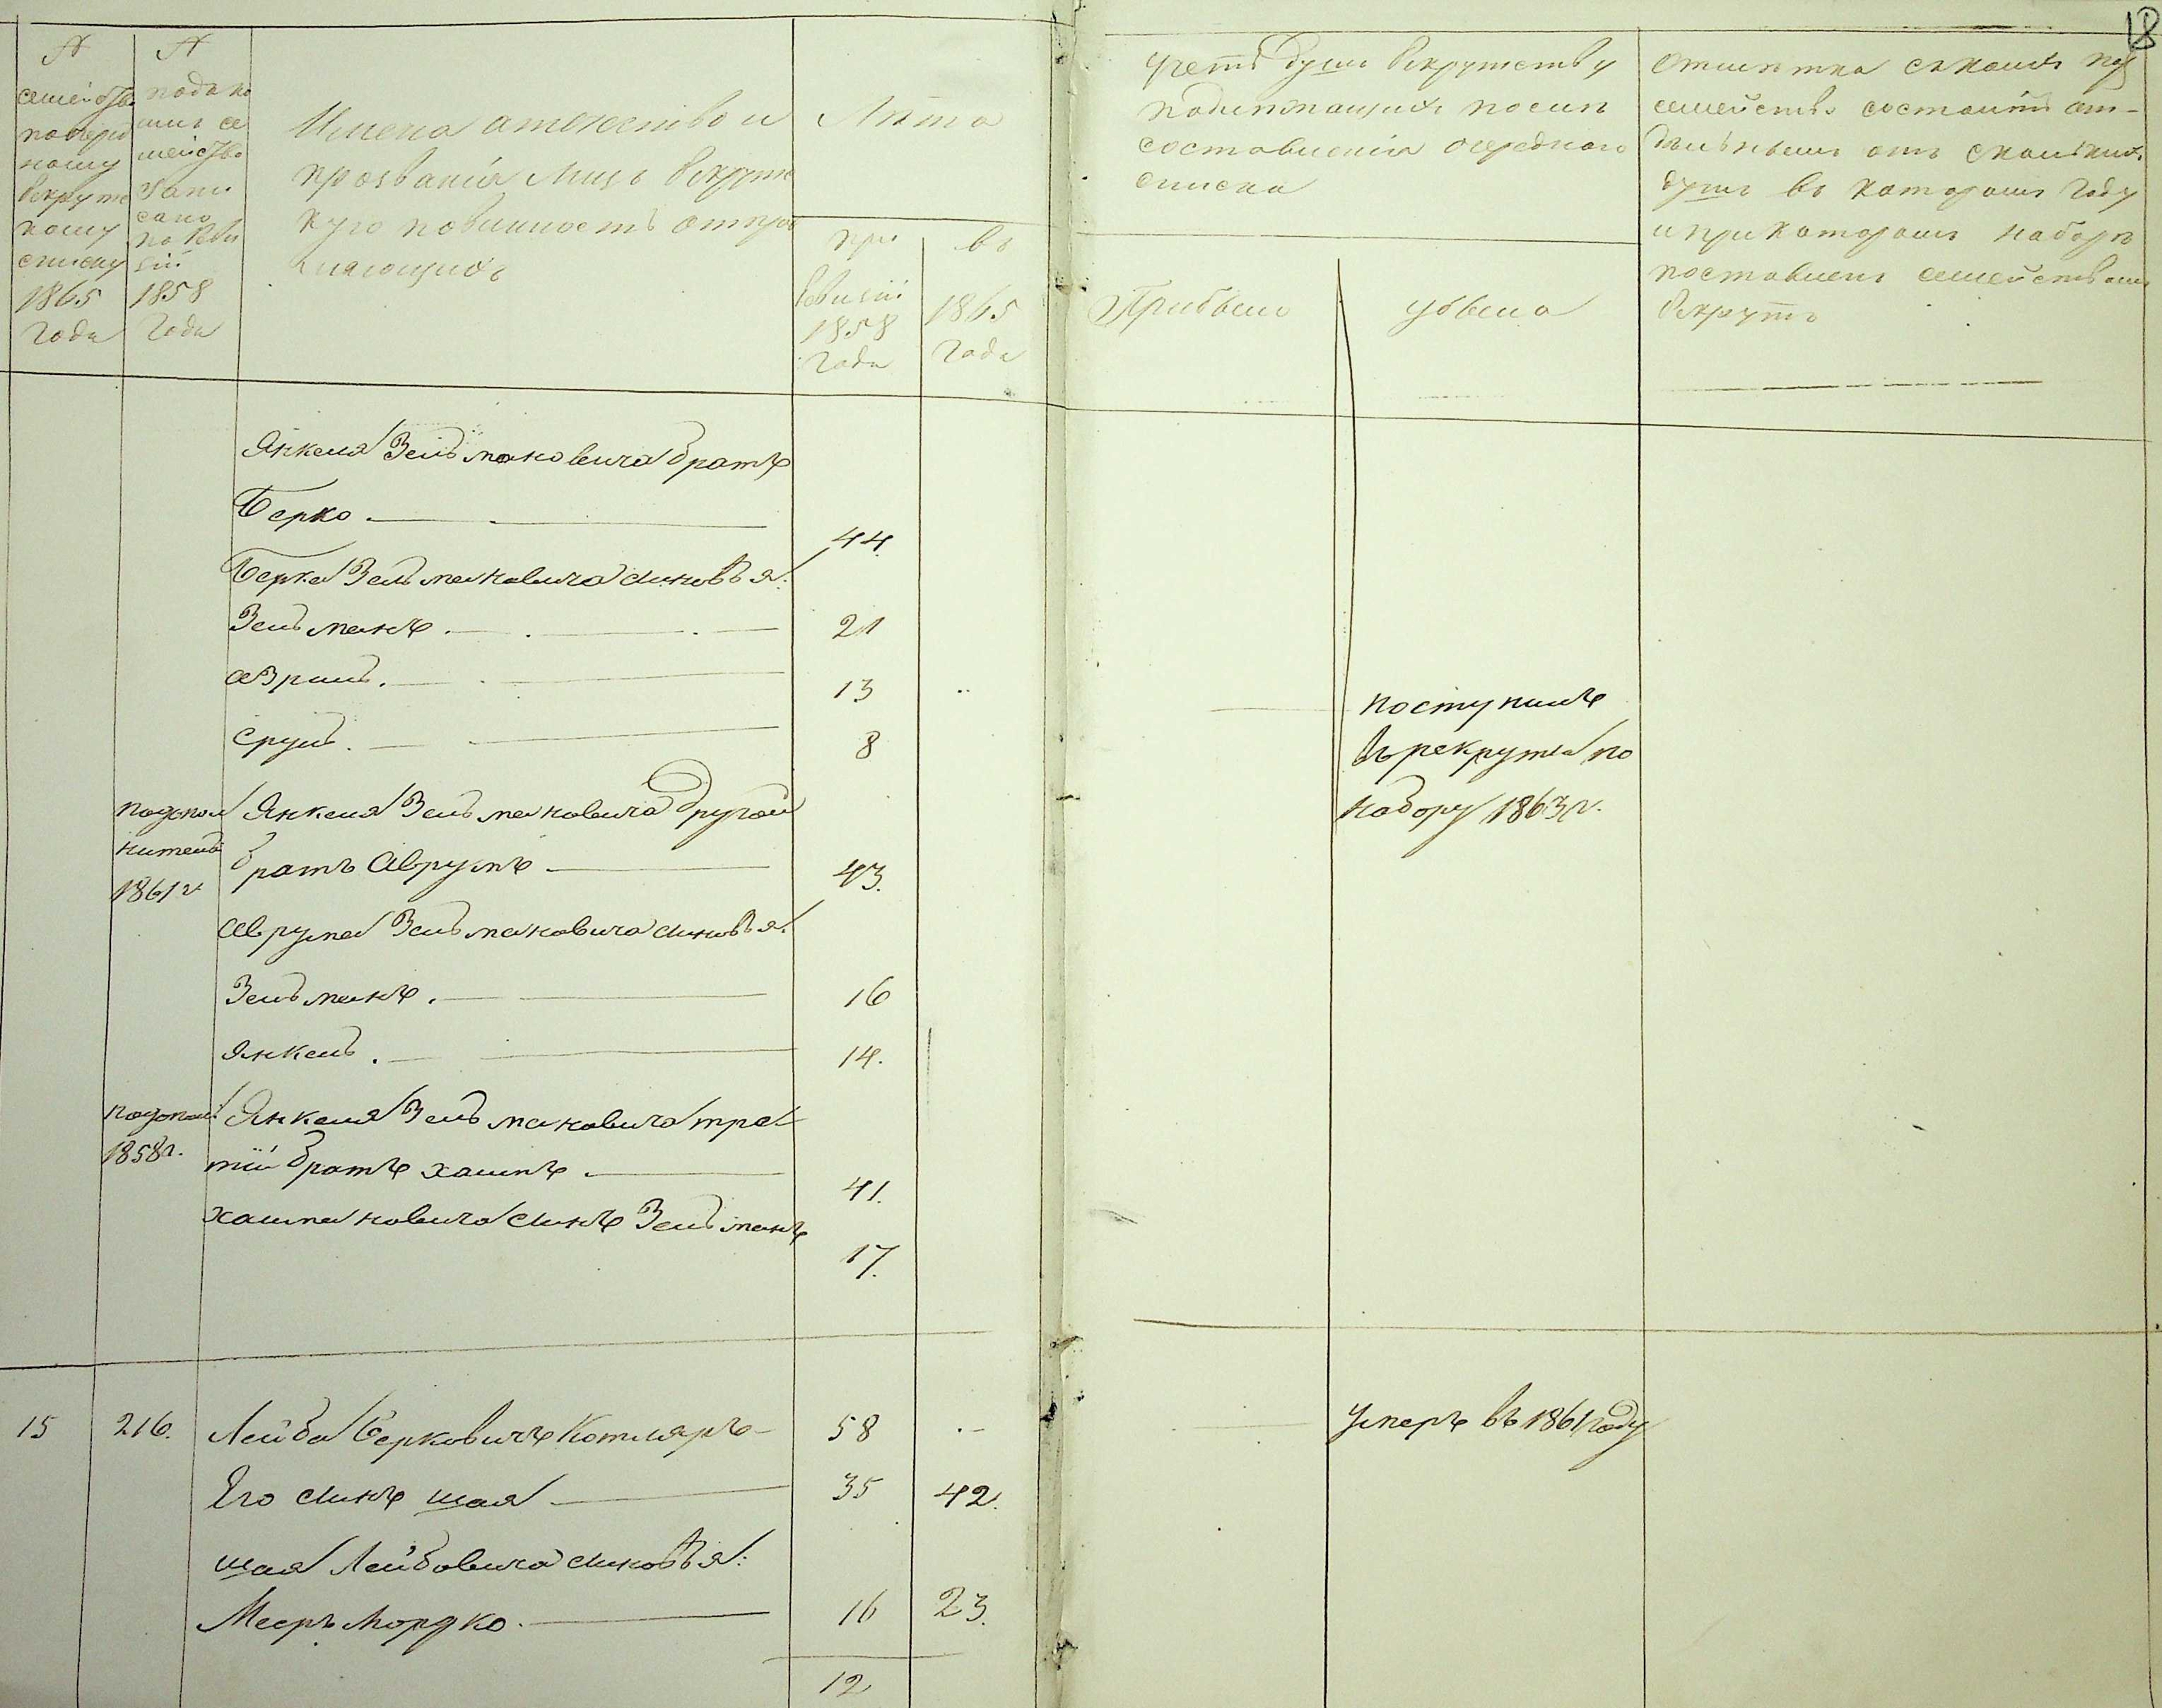 18
№
семейства
по очеред
ному
рекрутс
кому
списку
1865
года
№
подако
имъ се
мейство
запи
сано
по реви
зіи
1858
года
Имена отчество и
прозванія лицъ рекрутс
кую повинность отпра
вляющихъ
Лѣта
при
ревизіи
1858
года
въ
1865
года
Учетъ душъ рекрутству
подлежащихъ послѣ
составленія очереднаго
списка
Прибыло
убыло
Отмѣтка скакихъ
семейство состоитъ от-
дѣльнымъ отъ сколькихъ
душъ въ которомъ году
и при которомъ наборѣ
поставленъ семействомъ
рекрутъ
Янкеля Зельмановича братъ
Берко. 44.
Берка Зельмановича сыновья:
Зельманъ. 21
Азриль. 13 ..
поступилъ
въ рекруты по
набору 1863 г.
Сруль. 8
подопол
нитель
1861 г
Янкеля Зельмановича другой
братъ Аврумъ 43.
Аврума Зельмановича сыновья.
Зельманъ. 16
Янкель. 14.
подопол:
1858 г.
Янкеля Зельмановича тре
тій братъ Хаимъ. 41.
Хаимановича сынъ Зельманъ
17.
15 216. Лейба Берковичъ Котляръ 58 .- умеръ въ 1861 году
Его сынъ Шая 35 42.
Шая Лейбовича сыновья:
Мееръ Мордко. 16 23.
12